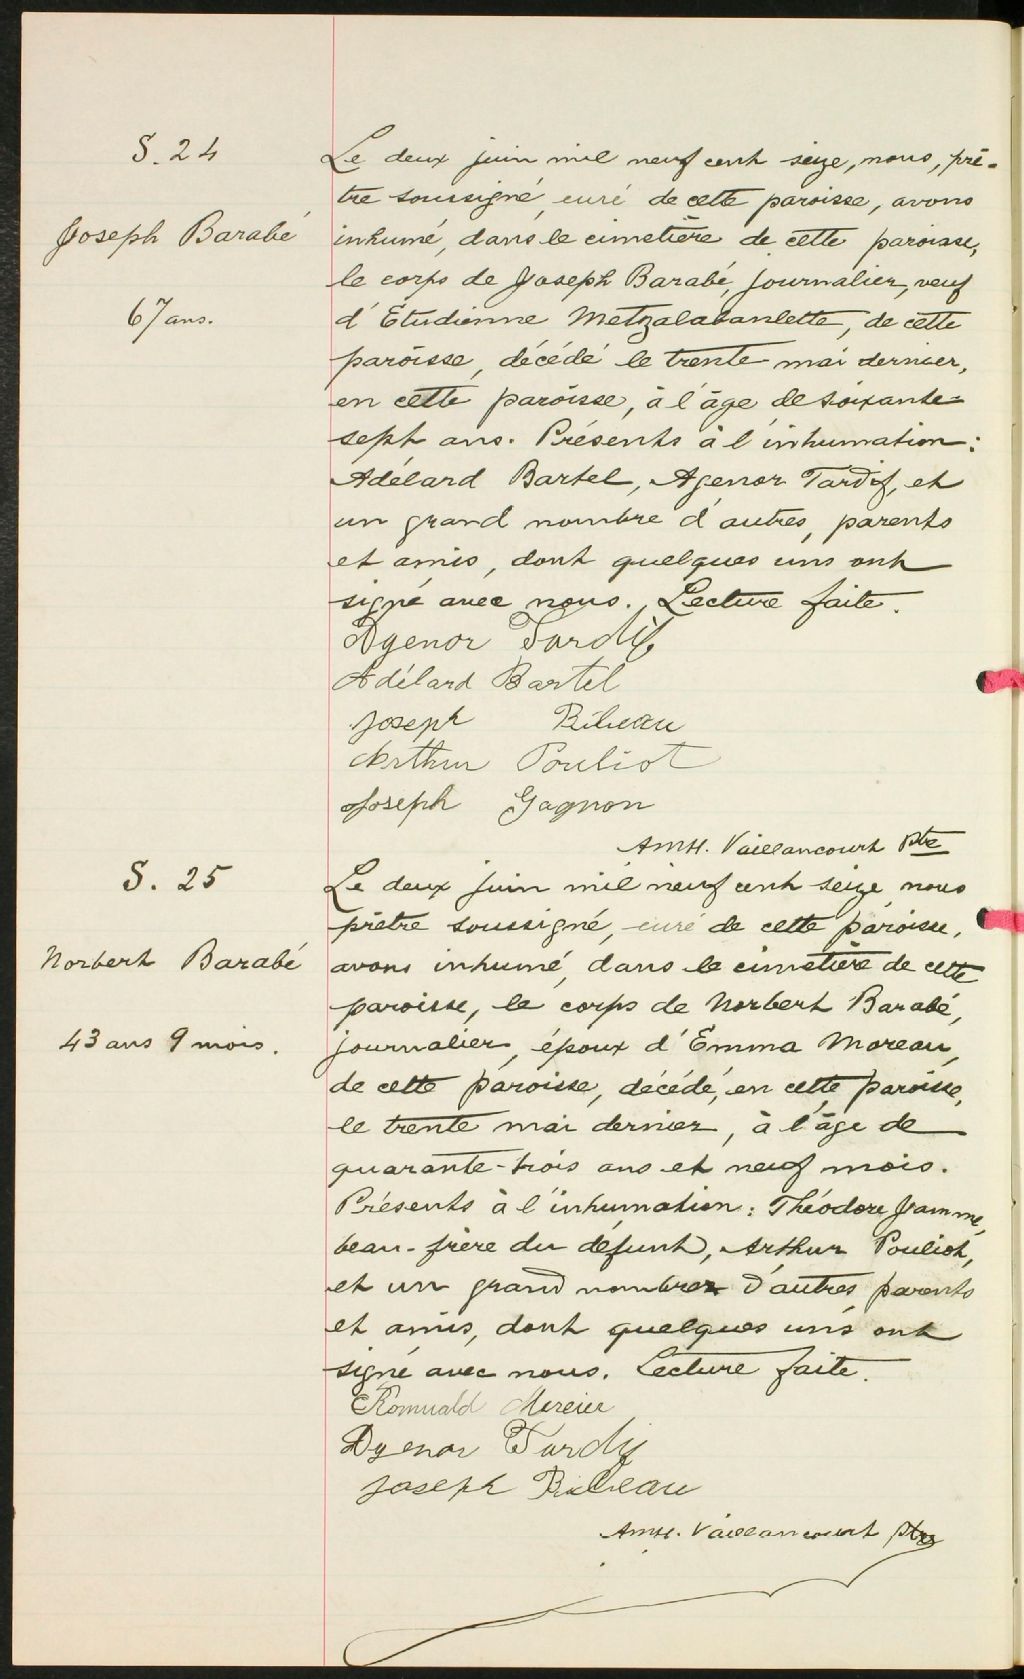 S. 24
Joseph Barabé
67 ans.
Le deux juin mil neuf cent seize, nous, prê-
tre soussigné, curé de cette paroisse, avons
inhumé, dans le cimetière de cette paroisse,
le corps de Joseph Barabé, journalier, veuf
d'Étudienne Metzalabanlette, de cette
paroisse, décédé le trente mai dernier,
en cette paroisse, à l'âge de soixante=
sept ans. Présents à l'inhumation:
Adélard Bartel, Agenor Tardif, et
un grand nombre d'autres, parents
et amis, dont quelques uns ont
signé avec nous. Lecture faite.
Agenor Tardif
Adélard Bartel
Joseph Bibeau
Arthur Pouliot
Joseph Gagnon
Am H. Vaillancourt Ptre
S. 25
Norbert Barabé
43 ans 9 mois.
Le deux juin mil neuf cent seize nous
prêtre soussigné, curé de cette paroisse,
avons inhumé, dans le cimetière de cette
paroisse, le corps de Norbert Barabé,
journalier, époux d'Emma Moreau,
de cette paroisse, décédé, en cette paroisse,
le trente mai dernier, à l'âge de
quarante-trois ans et neuf mois.
Présents à l'inhumation: Théodore Jamme,
beau-frère du défunt, Arthur Pouliot,
et un grand nombre d'autres parents
et amis, dont quelques uns ont
signé avec nous. Lecture faite.
Romuald Mercier
Agenor Tardif
Joseph Bibeau
Am H. Vaillancourt ptre